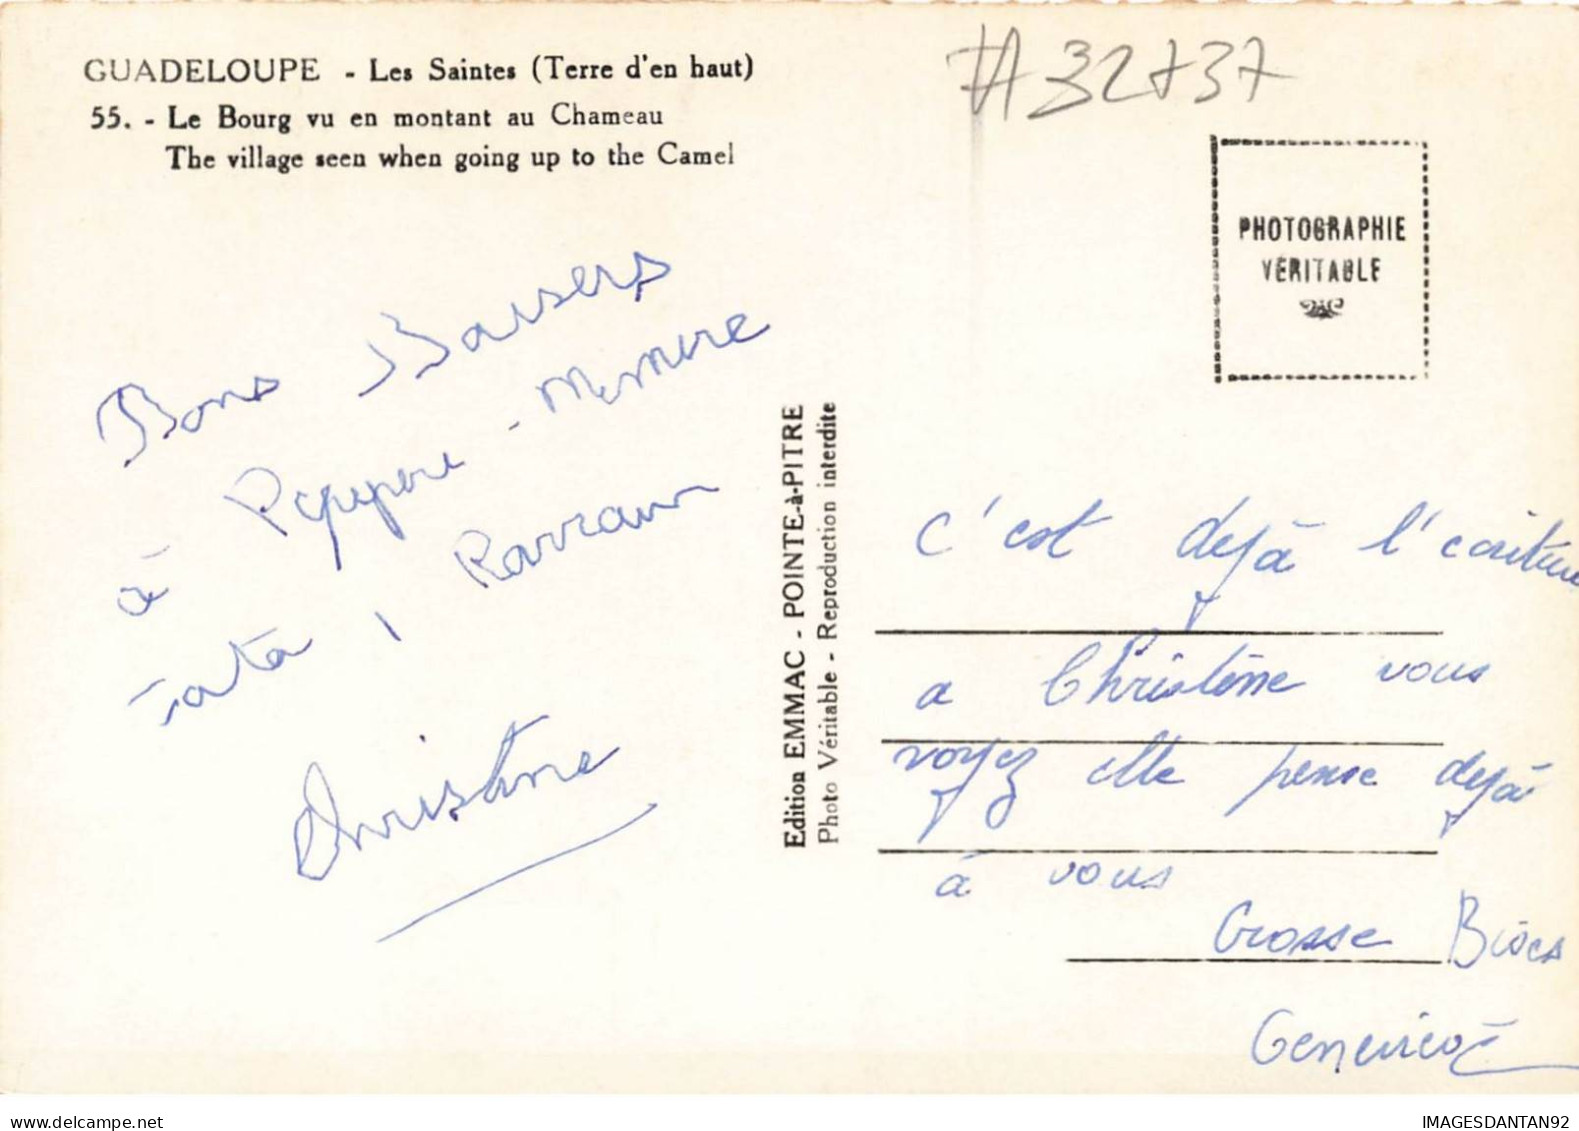 GUADELOUPE - Les Saintes (Terre d'en haut)
55. - Le Bourg vu en montant au Chameau
The village seen when going up to the Camel
#32737
PHOTOGRAPHIE
VÉRITABLE
Bons Baisers
à Pepepere - Memere
tata,
Christine
Edition EMMAC - POINTE-à-PITRE
Photo Véritable - Reproduction interdite
c'est dejà l'ecriture
a Christine vous
voyez elle pense dejà
à vous
Grosse Bises
Genevieve
delcampe.net
IMAGESDANTAN92